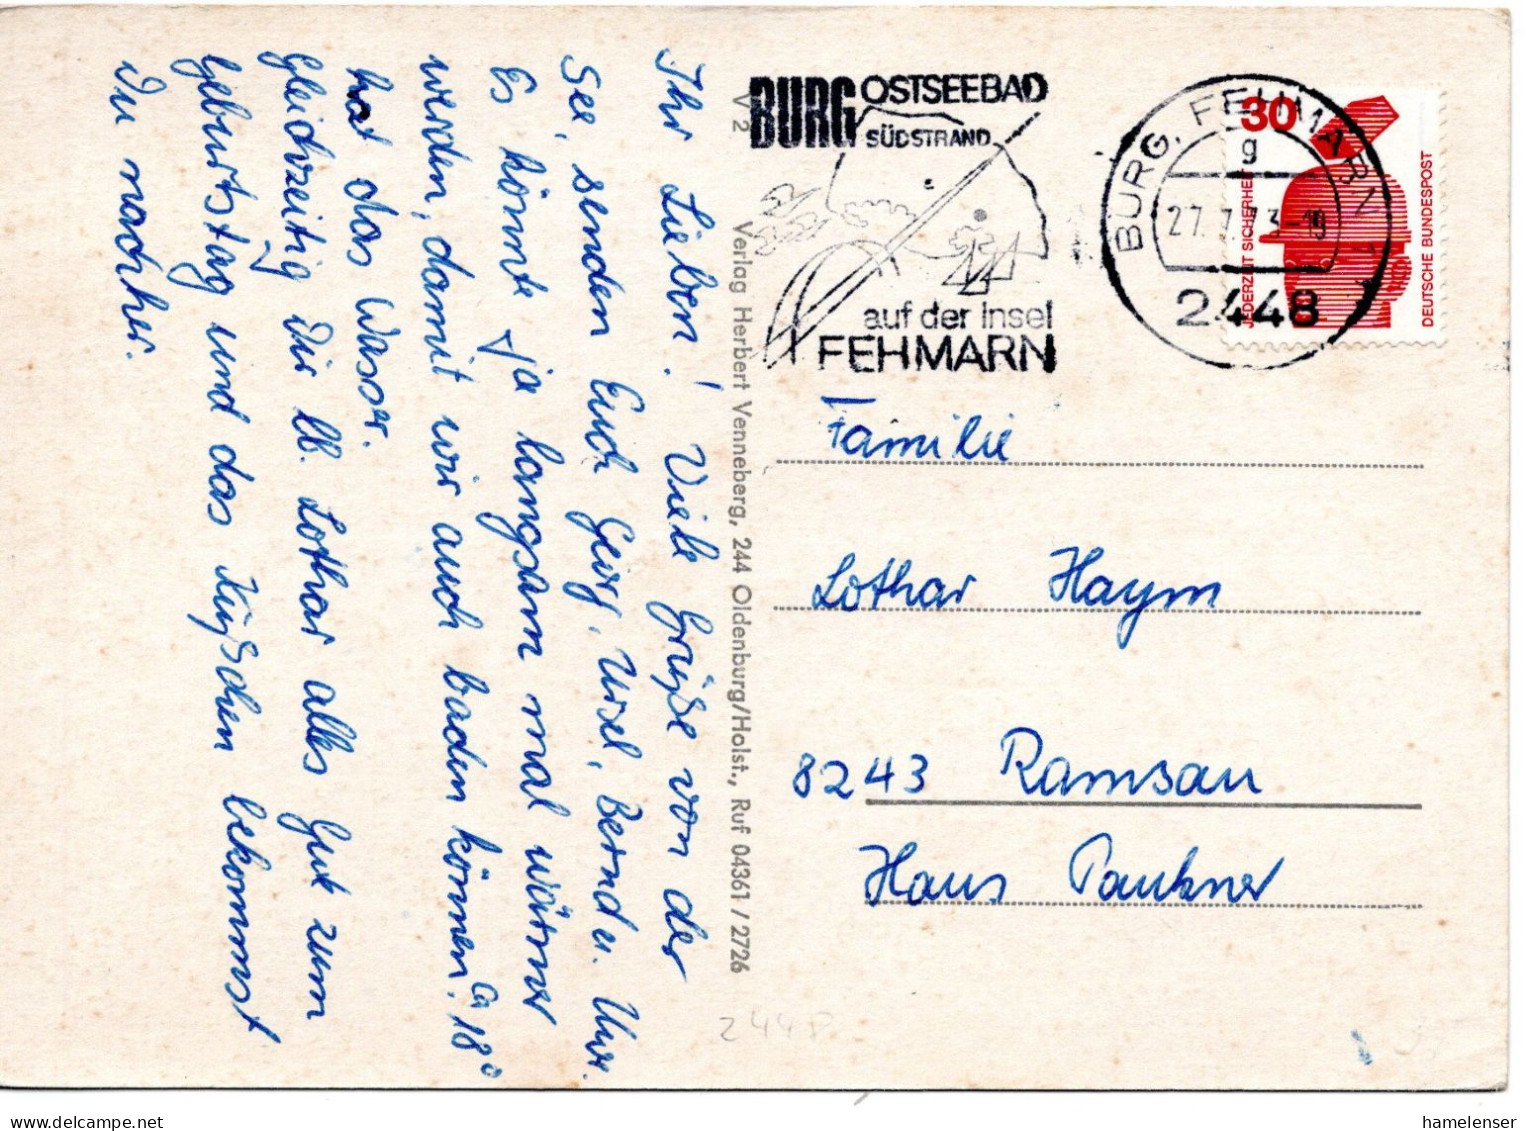 Ihr Lieben! Viele Grüße von der
See, senden Euch Georg, Ursel, Bernd u.
Es könnte ja langsam mal wärmer
werden, damit wir auch baden können. Ca 18°
hat das Wasser.
Gleichzeitig Dir lb. Lothar alles Gute zum
Geburtstag und das Küßchen bekommst
Du nachher.
V 2
Verlag Herbert Venneberg, 244 Oldenburg/Holst., Ruf 04361 / 2726
BURG OSTSEEBAD
SÜDSTRAND
auf der Insel
FEHMARN
BURG, FEHMARN 1
g
27.7.73-19
2448
30
JEDERZEIT SICHERHEIT
DEUTSCHE BUNDESPOST
Familie
Lothar Haym
8243 Ramsau
Haus Paukner
2448
hamelenser